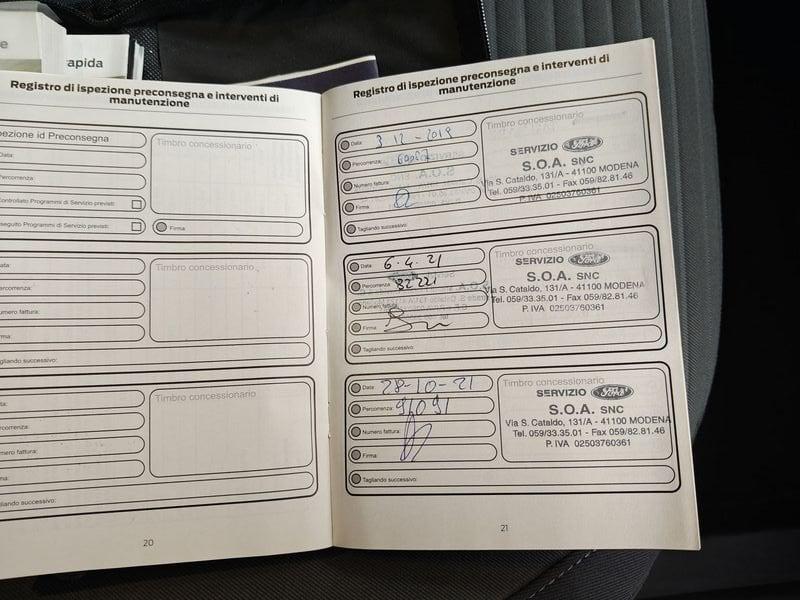 e
rapida
Registro di ispezione preconsegna e interventi di
manutenzione
ezione id Preconsegna
Timbro concessionario
Data:
Percorrenza:
Controllato Programmi di Servizio previsti:
eguito Programmi di Servizio previsti:
Firma
Data:
Timbro concessionario
ercorrenza:
Numero fattura:
rma:
Tagliando successivo:
ata:
Timbro concessionario
ercorrenza:
Numero fattura:
rma:
Tagliando successivo:
20
Registro di ispezione preconsegna e interventi di
manutenzione
Data: 3 12 - 2019
Percorrenza:
Numero fattura:
Firma
Tagliando successivo:
Timbro concessionario
SERVIZIO Ford
S.O.A. SNC
Via S. Cataldo, 131/A - 41100 MODENA
Tel. 059/33.35.01 - Fax 059/82.81.46
P. IVA 02503760361
Data: 6.4.21
Percorrenza:
Numero fattura:
Firma
Tagliando successivo:
Timbro concessionario
SERVIZIO Ford
S.O.A. SNC
Via S. Cataldo, 131/A - 41100 MODENA
Tel. 059/33.35.01 - Fax 059/82.81.46
P. IVA 02503760361
Data: 28-10-21
Percorrenza: 91091
Numero fattura:
Firma:
Tagliando successivo:
Timbro concessionario
SERVIZIO Ford
S.O.A. SNC
Via S. Cataldo, 131/A - 41100 MODENA
Tel. 059/33.35.01 - Fax 059/82.81.46
P. IVA 02503760361
21